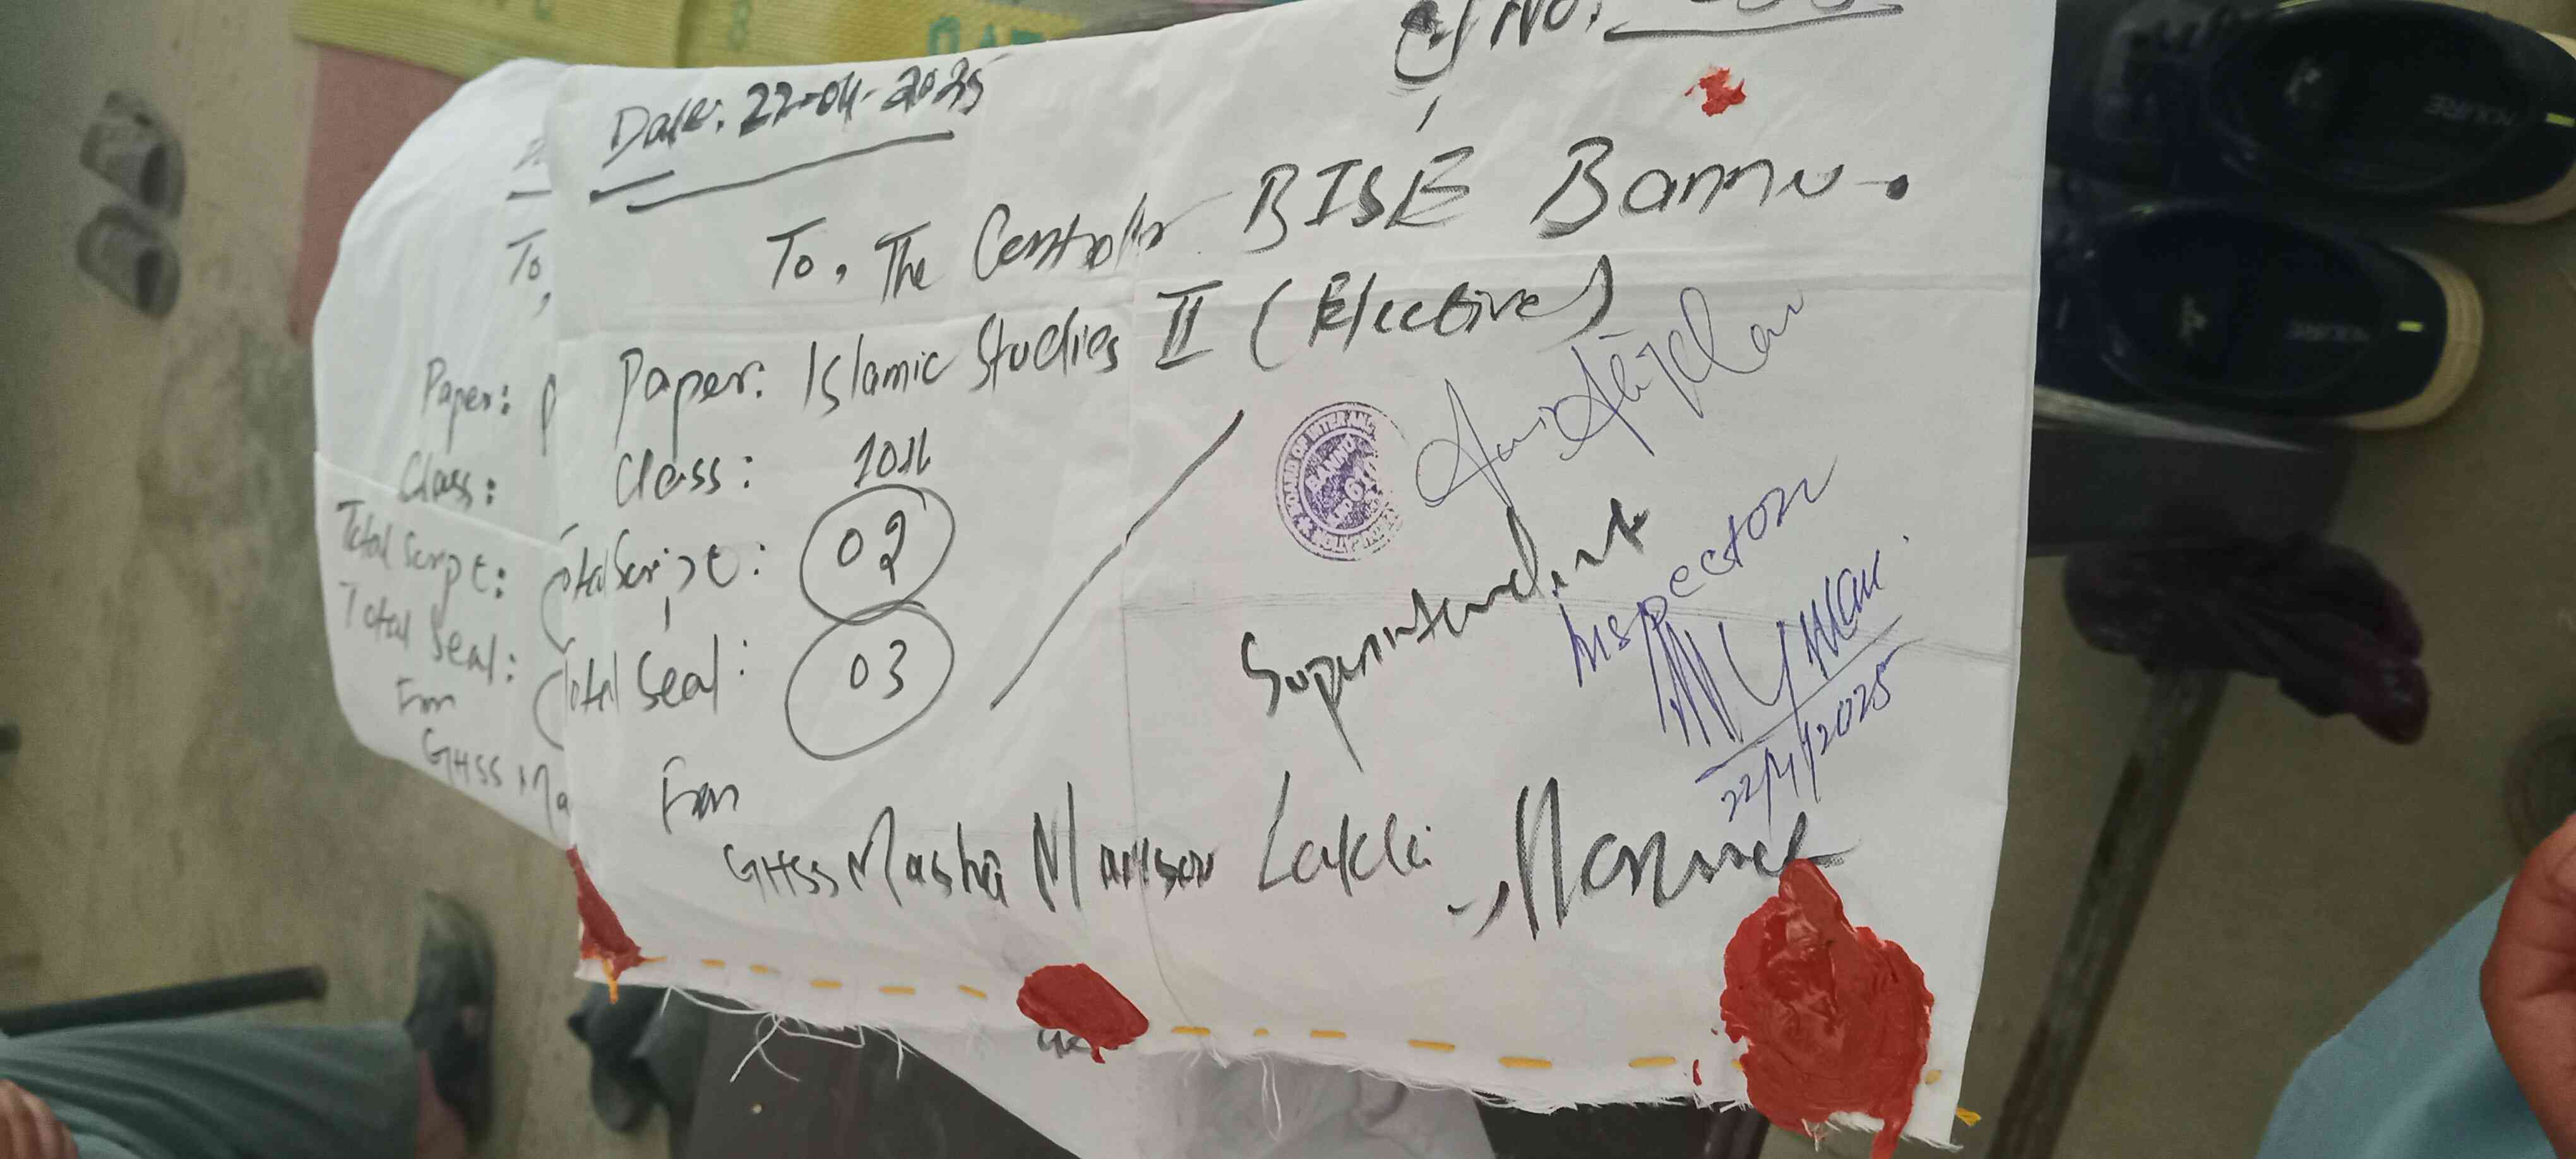 C/No.
Date: 22-04-2025
To, The Controller BISE Bannu.
Paper: Islamic Studies II (Elective)
Class: 10th
Total Script: 02
Total Seal: 03
Superintendent
Inspector
22/4/2025
From
GHSS Masha Mansoor Lakki Marwat
BOARD OF INTER
BANNU
To,
Paper: P
Class:
Total Script:
Total Seal:
From
GHSS Ma